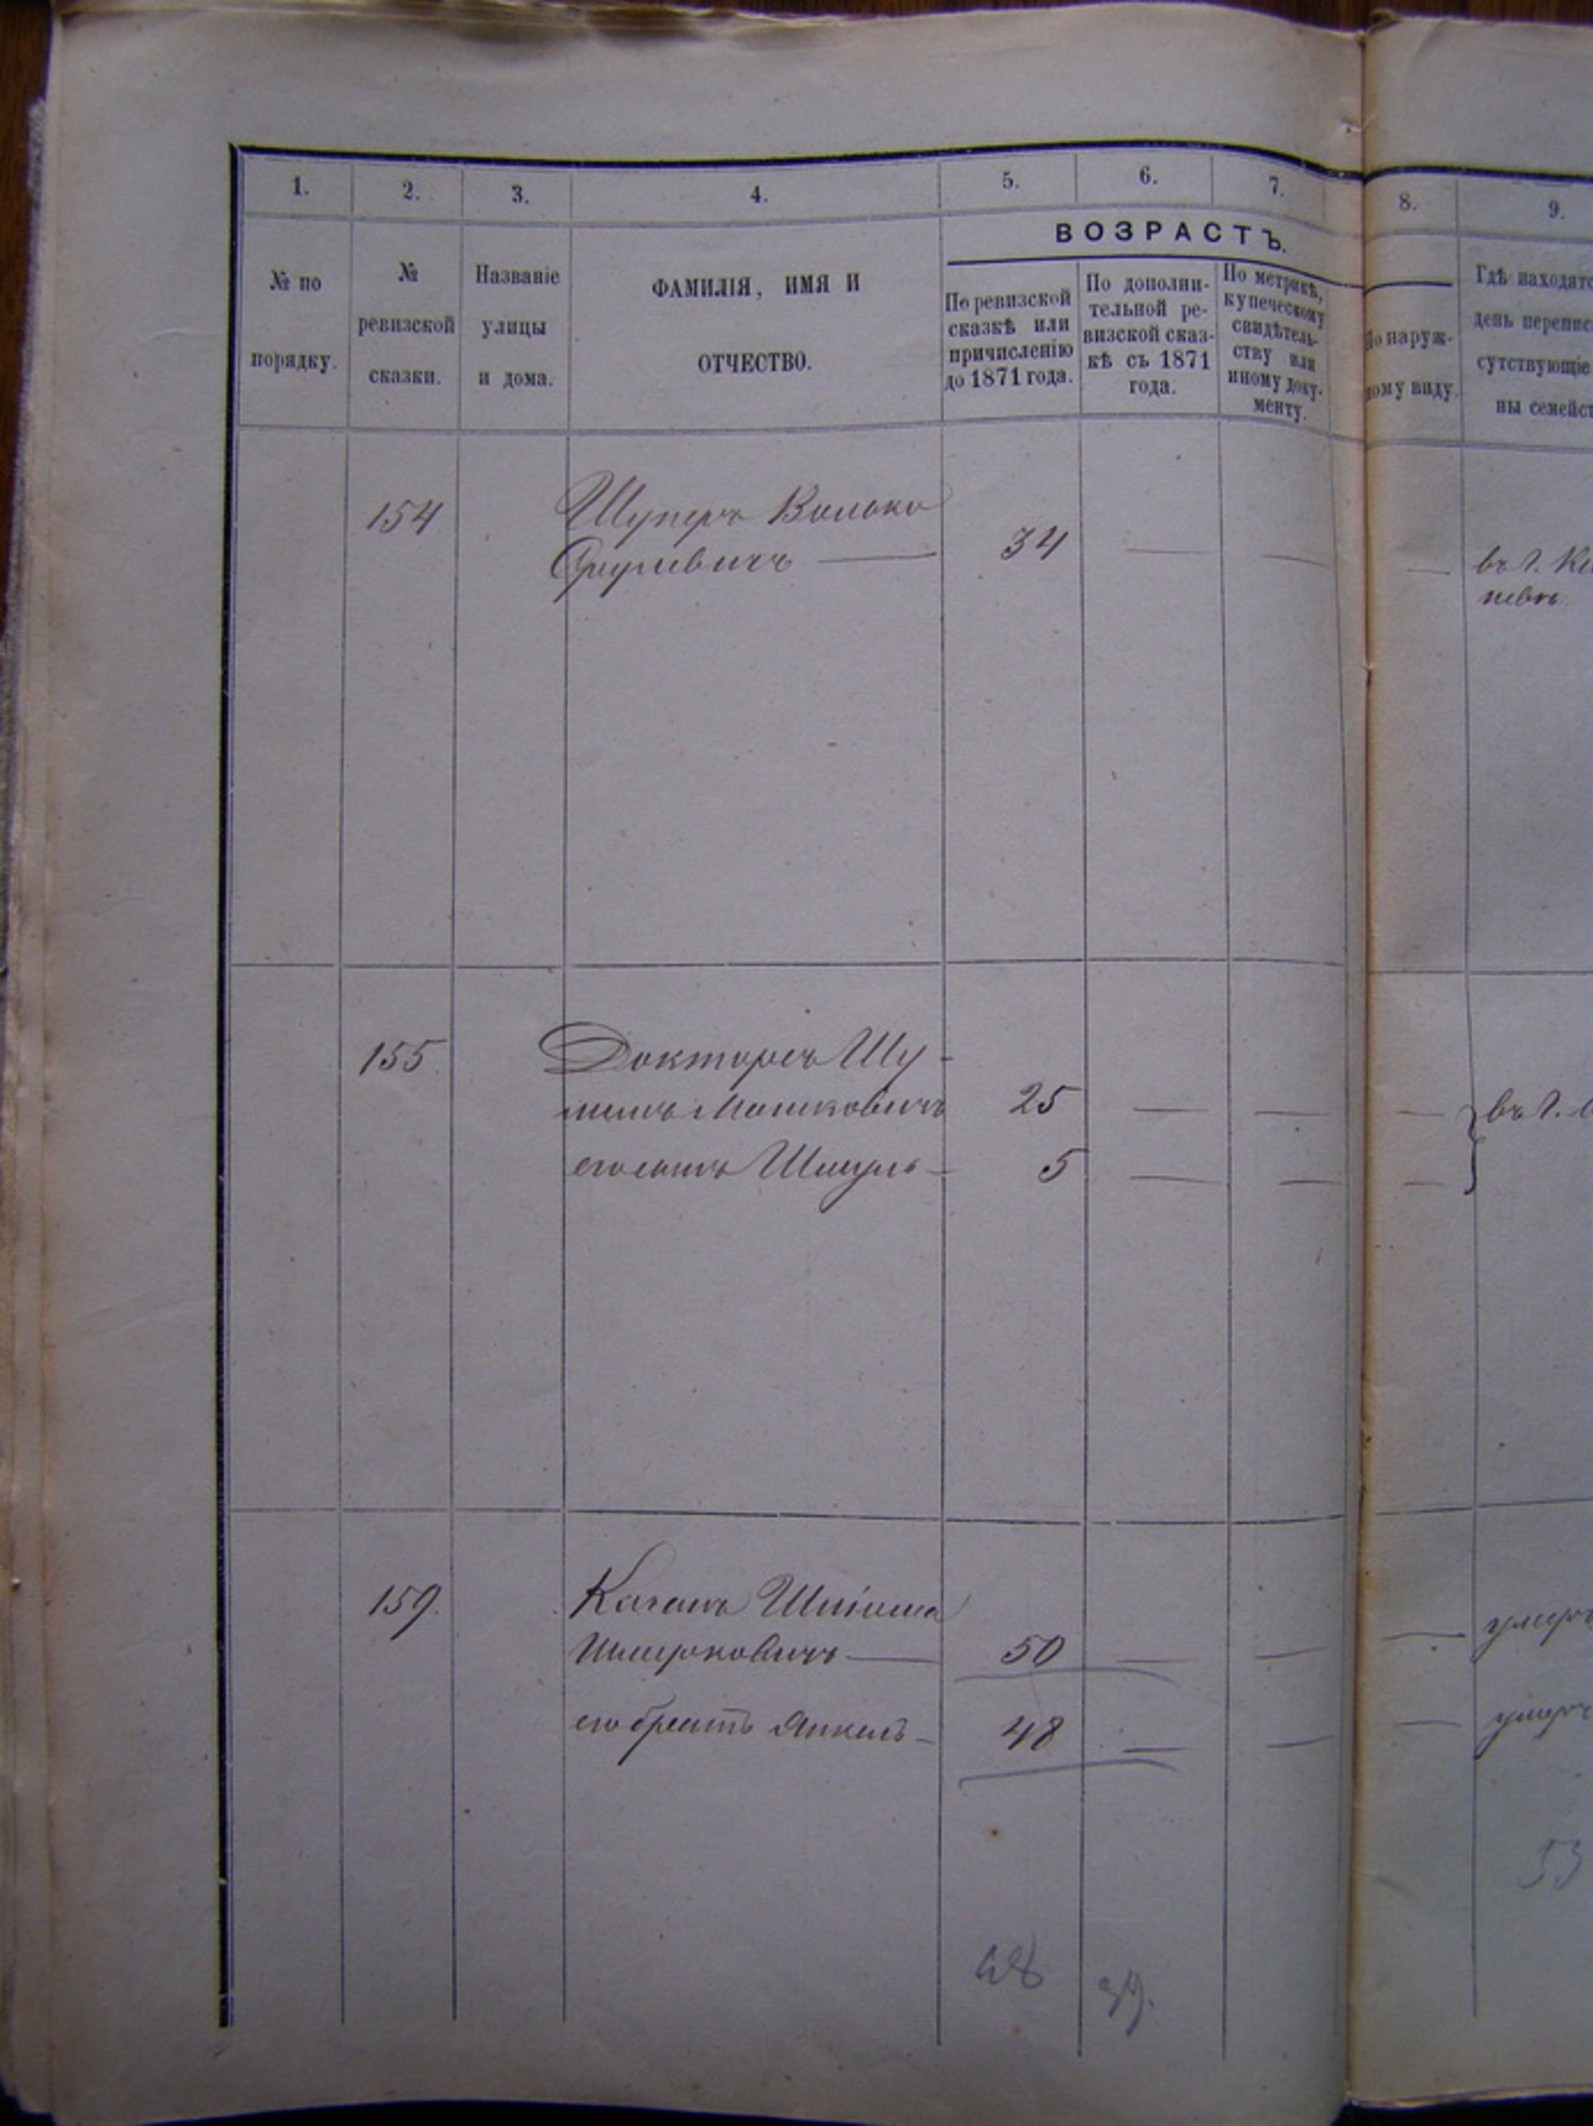 1. 2. 3. 4. 5. 6. 7. 8. 9.
ВОЗРАСТЪ.
№ по
порядку.
№
ревизской
сказки.
Названіе
улицы
и дома.
ФАМИЛІЯ, ИМЯ И
ОТЧЕСТВО.
По ревизской
сказкѣ или
причисленію
до 1871 года.
По дополни-
тельной ре-
визской сказ-
кѣ съ 1871
года.
По метрикѣ,
купеческому
свидѣтель-
ству или
иному доку-
менту.
По наруж-
ному виду.
Гдѣ находятс
день перепис
сутствующіе
ны семейст
154 Шуперъ Волько
Сруլевичъ — 34 — — — въ г. Ки
невѣ.
155 Докторъ Шу-
Мошковичъ 25 — — — въ г.
его сынъ Шмуль — 5 — — —
159. Каганъ Шліома
Шмерковичъ — 50 — — — умеръ
его братъ Янкель — 48 — — — умеръ
53
48 39.